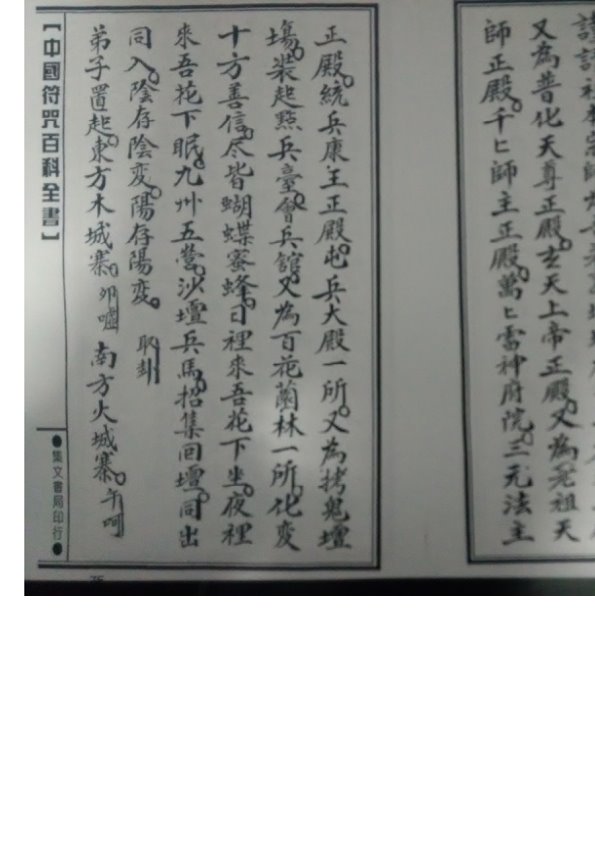 又為普化天尊正殿。玄天上帝正殿。又為老祖天
師正殿。千匕師主正殿。萬匕雷神府院。三元法主
正殿。統兵康王正殿。屯兵大殿一所。又為拷鬼壇
塲。裝起點兵臺。會兵館。又為百花園林一所。化変
十方善信。尽皆蝴蝶蜜蜂。日裡來吾花下坐。夜裡
來吾花下眠。九州五營。沙壇兵馬。招集回壇。同出
同入。陰存陰変。陽存陽変。 取卦
弟子置起。東方木城寨。卯噓 南方火城寨。午呵
【中國符咒百科全書】
●集文書局印行●